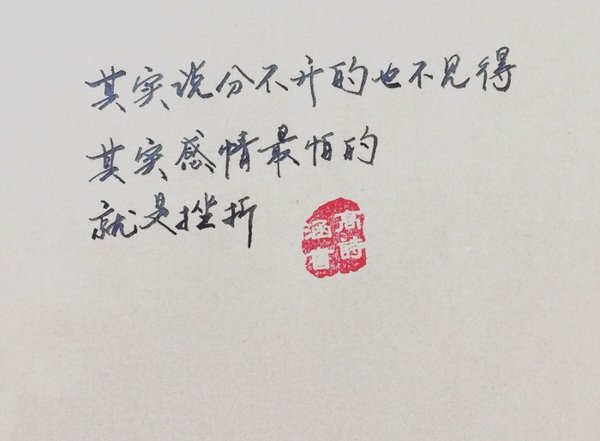 其实说分不开的也不见得
其实感情最怕的
就是挫折
高詩
涵書